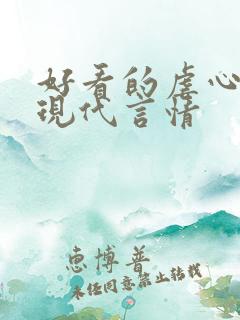 好看的虐心
現代言情
惠博普
未经同意禁止转载